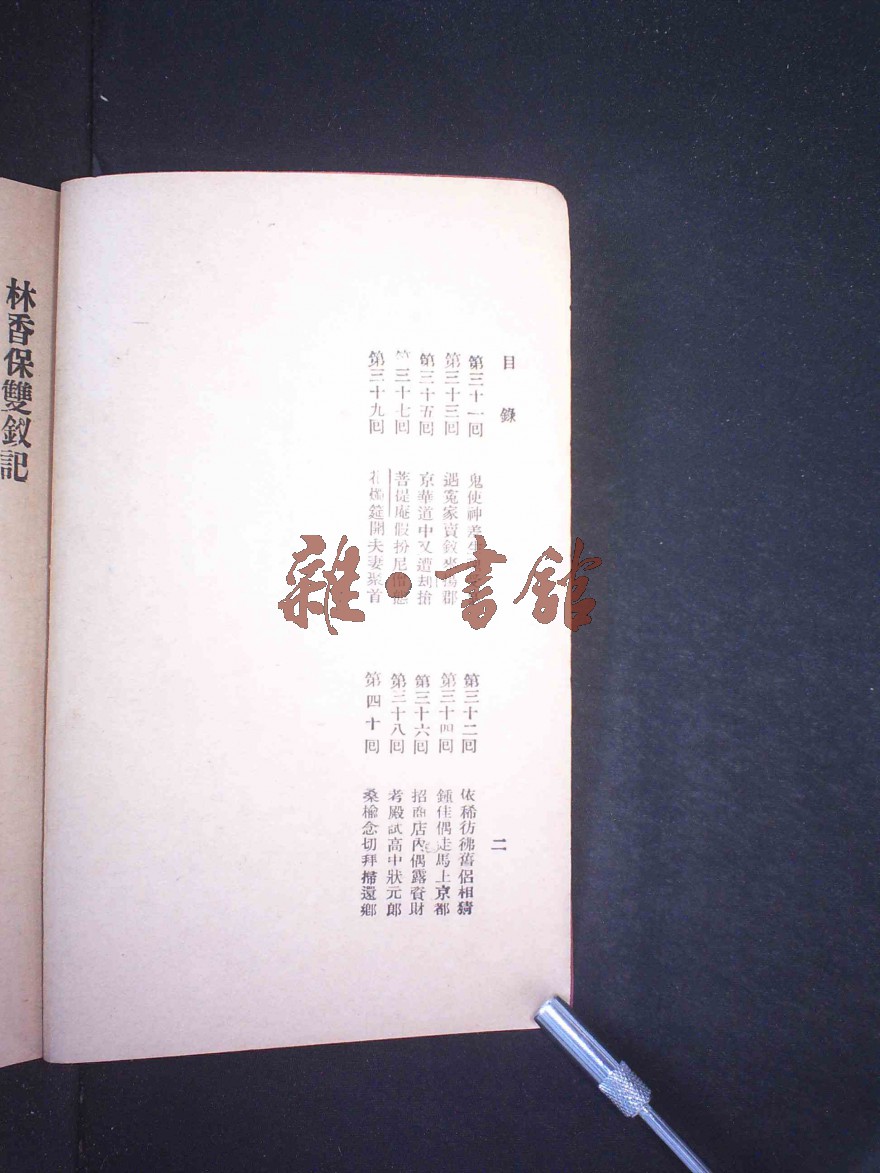 目錄 二
第三十一回 鬼使神差
第三十二回 依稀彷彿舊侶相猜
第三十三回 遇冤家賣釵 郡
第三十四回 鍾佳偶走馬上京都
第三十五回 京華道中又遭劫搶
第三十六回 招商店內偶露資財
第三十七回 菩提庵假扮尼僧
第三十八回 考殿試高中狀元郎
第三十九回 筵開夫妻聚首
第四十回 桑榆念切拜掃還鄉
林香保雙釵記
雜·書館